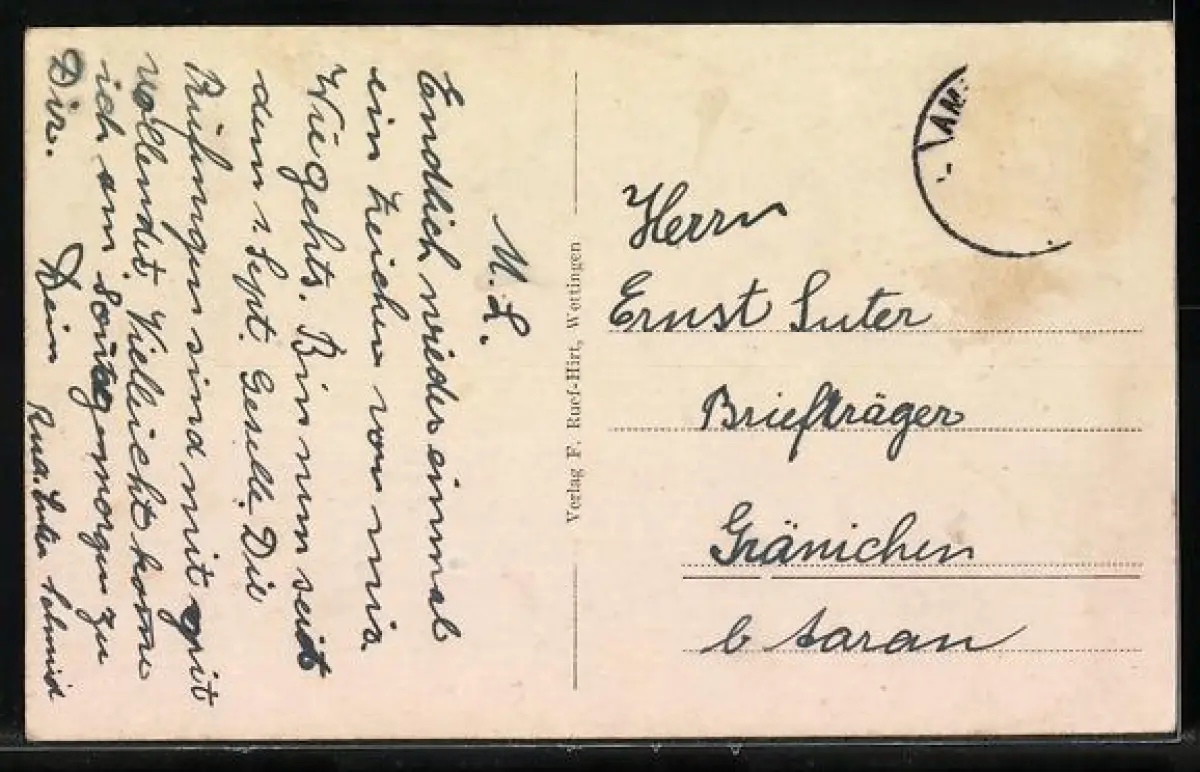 M. L.
Endlich wieder einmal
ein Zeichen von mir.
Wie gehts. Bin nun seit
dem 1. Sept. Geselle. Die
Prüfungen sind mit gut
vollendet. Vielleicht kome
ich am Sontagmorgen zu
Dir. Dein
Suter Schmid
Verlag F. Ruef-Hirt, Wettingen
AM
Herrn
Ernst Suter
Briefträger
Gränichen
b Aarau